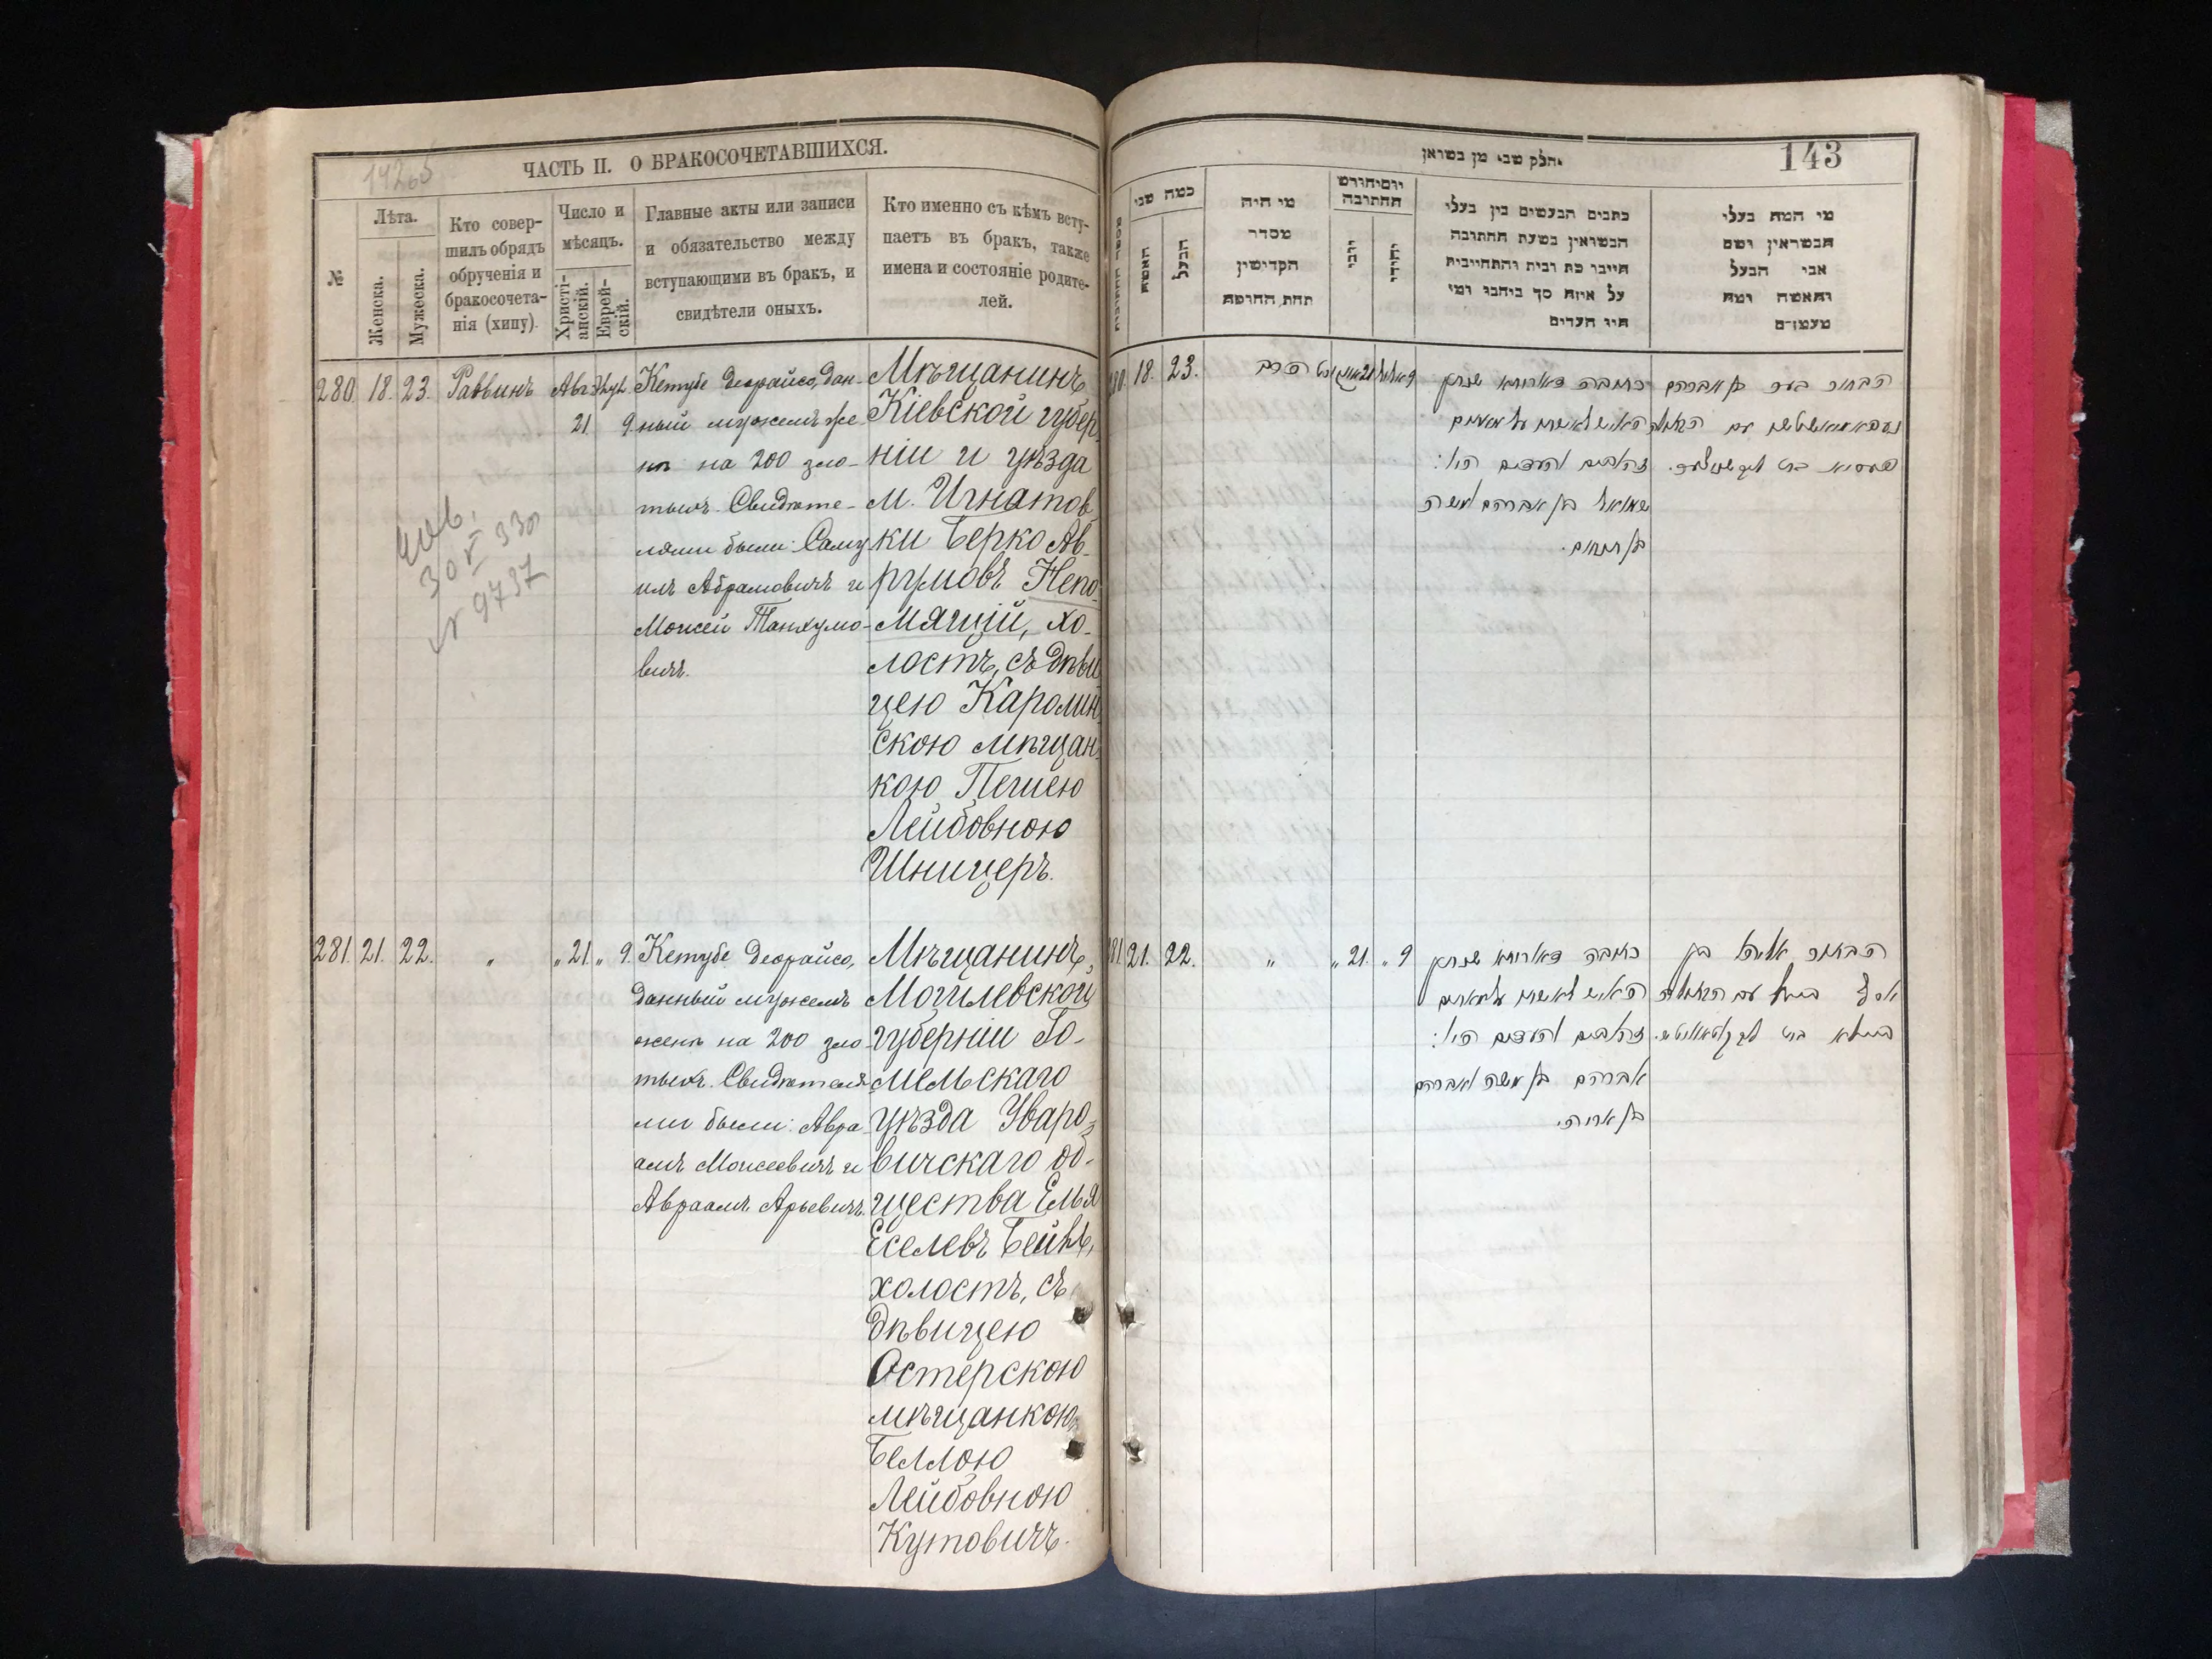 ЧАСТЬ II. О БРАКОСОЧЕТАВШИХСЯ.
№
Лѣта.
Женска.
Мужеска.
Кто совер-
шилъ обрядъ
обрученія и
бракосочета-
нія (хипу).
Число и
мѣсяцъ.
Христі-
анскій.
Еврей-
скій.
Главные акты или записи
и обязательство между
вступающими въ бракъ, и
свидѣтели оныхъ.
Кто именно съ кѣмъ всту-
паетъ въ бракъ, также
имена и состояніе родите-
лей.
280. 18. 23. Раввинъ
21. 9.
Кетубе деорайсо, дан-
ный мужемъ же-
нѣ на 200 зло-
тыхъ. Свидѣте-
лями были: Саму
илъ Абрамовичъ и
Моисей Танхумо-
вичъ.
Мѣщанинъ
Кіевской губер
ніи и уѣзда
м. Игнатов
ки Берко Ав-
румовъ Непо-
мящій, хо-
лостъ, съ дѣви
цею Каролин
скою мѣщан
кою Песею
Лейбовною
Шницеръ.
чив.
30 V 330
№ 9737
281. 21. 22. „ „ 21. „ 9.
Кетубе деорайсо,
данный мужемъ
женѣ на 200 зло
тыхъ. Свидѣтеля
ми были: Авра
амъ Моисеевичъ и
Авраамъ Арьевичъ.
Мѣщанинъ,
Могилевской
губерніи Го-
мельскаго
уѣзда Уваро-
вичскаго об-
щества Елья
Еселевъ Бейнъ,
холостъ, съ
дѣвицею
Остерскою
мѣщанкою,
Беллою
Лейбовною
Кутовичъ.
143
חלק שני מן נשואין
כמה שני
האשה
הבעל
מי היה
מסדר
הקדישין
תחת החופה
כתבים הנעשים בין בעלי
הנשואין בשעת החתונה
היינו כת ובית והתחייבות
על איזה סך ביהבו ומי
היו העדים
מי המה בעלי
הנשואין ושם
אבי הבעל
והאשה ומה
מעמדם
280. 18. 23.
כתובה דאורייתא שנתן
האיש לאשתו על מאתים
זהובים והעדים היו:
שמואל בן אברהם ומשה
בן תנחום.
281. 21. 22. „ „ 21. „ 9
כתובה דאורייתא שנתן
האיש לאשתו על מאתים
זהובים והעדים היו:
אברהם בן משה ואברהם
בן אריה.
הבחור אליה בן